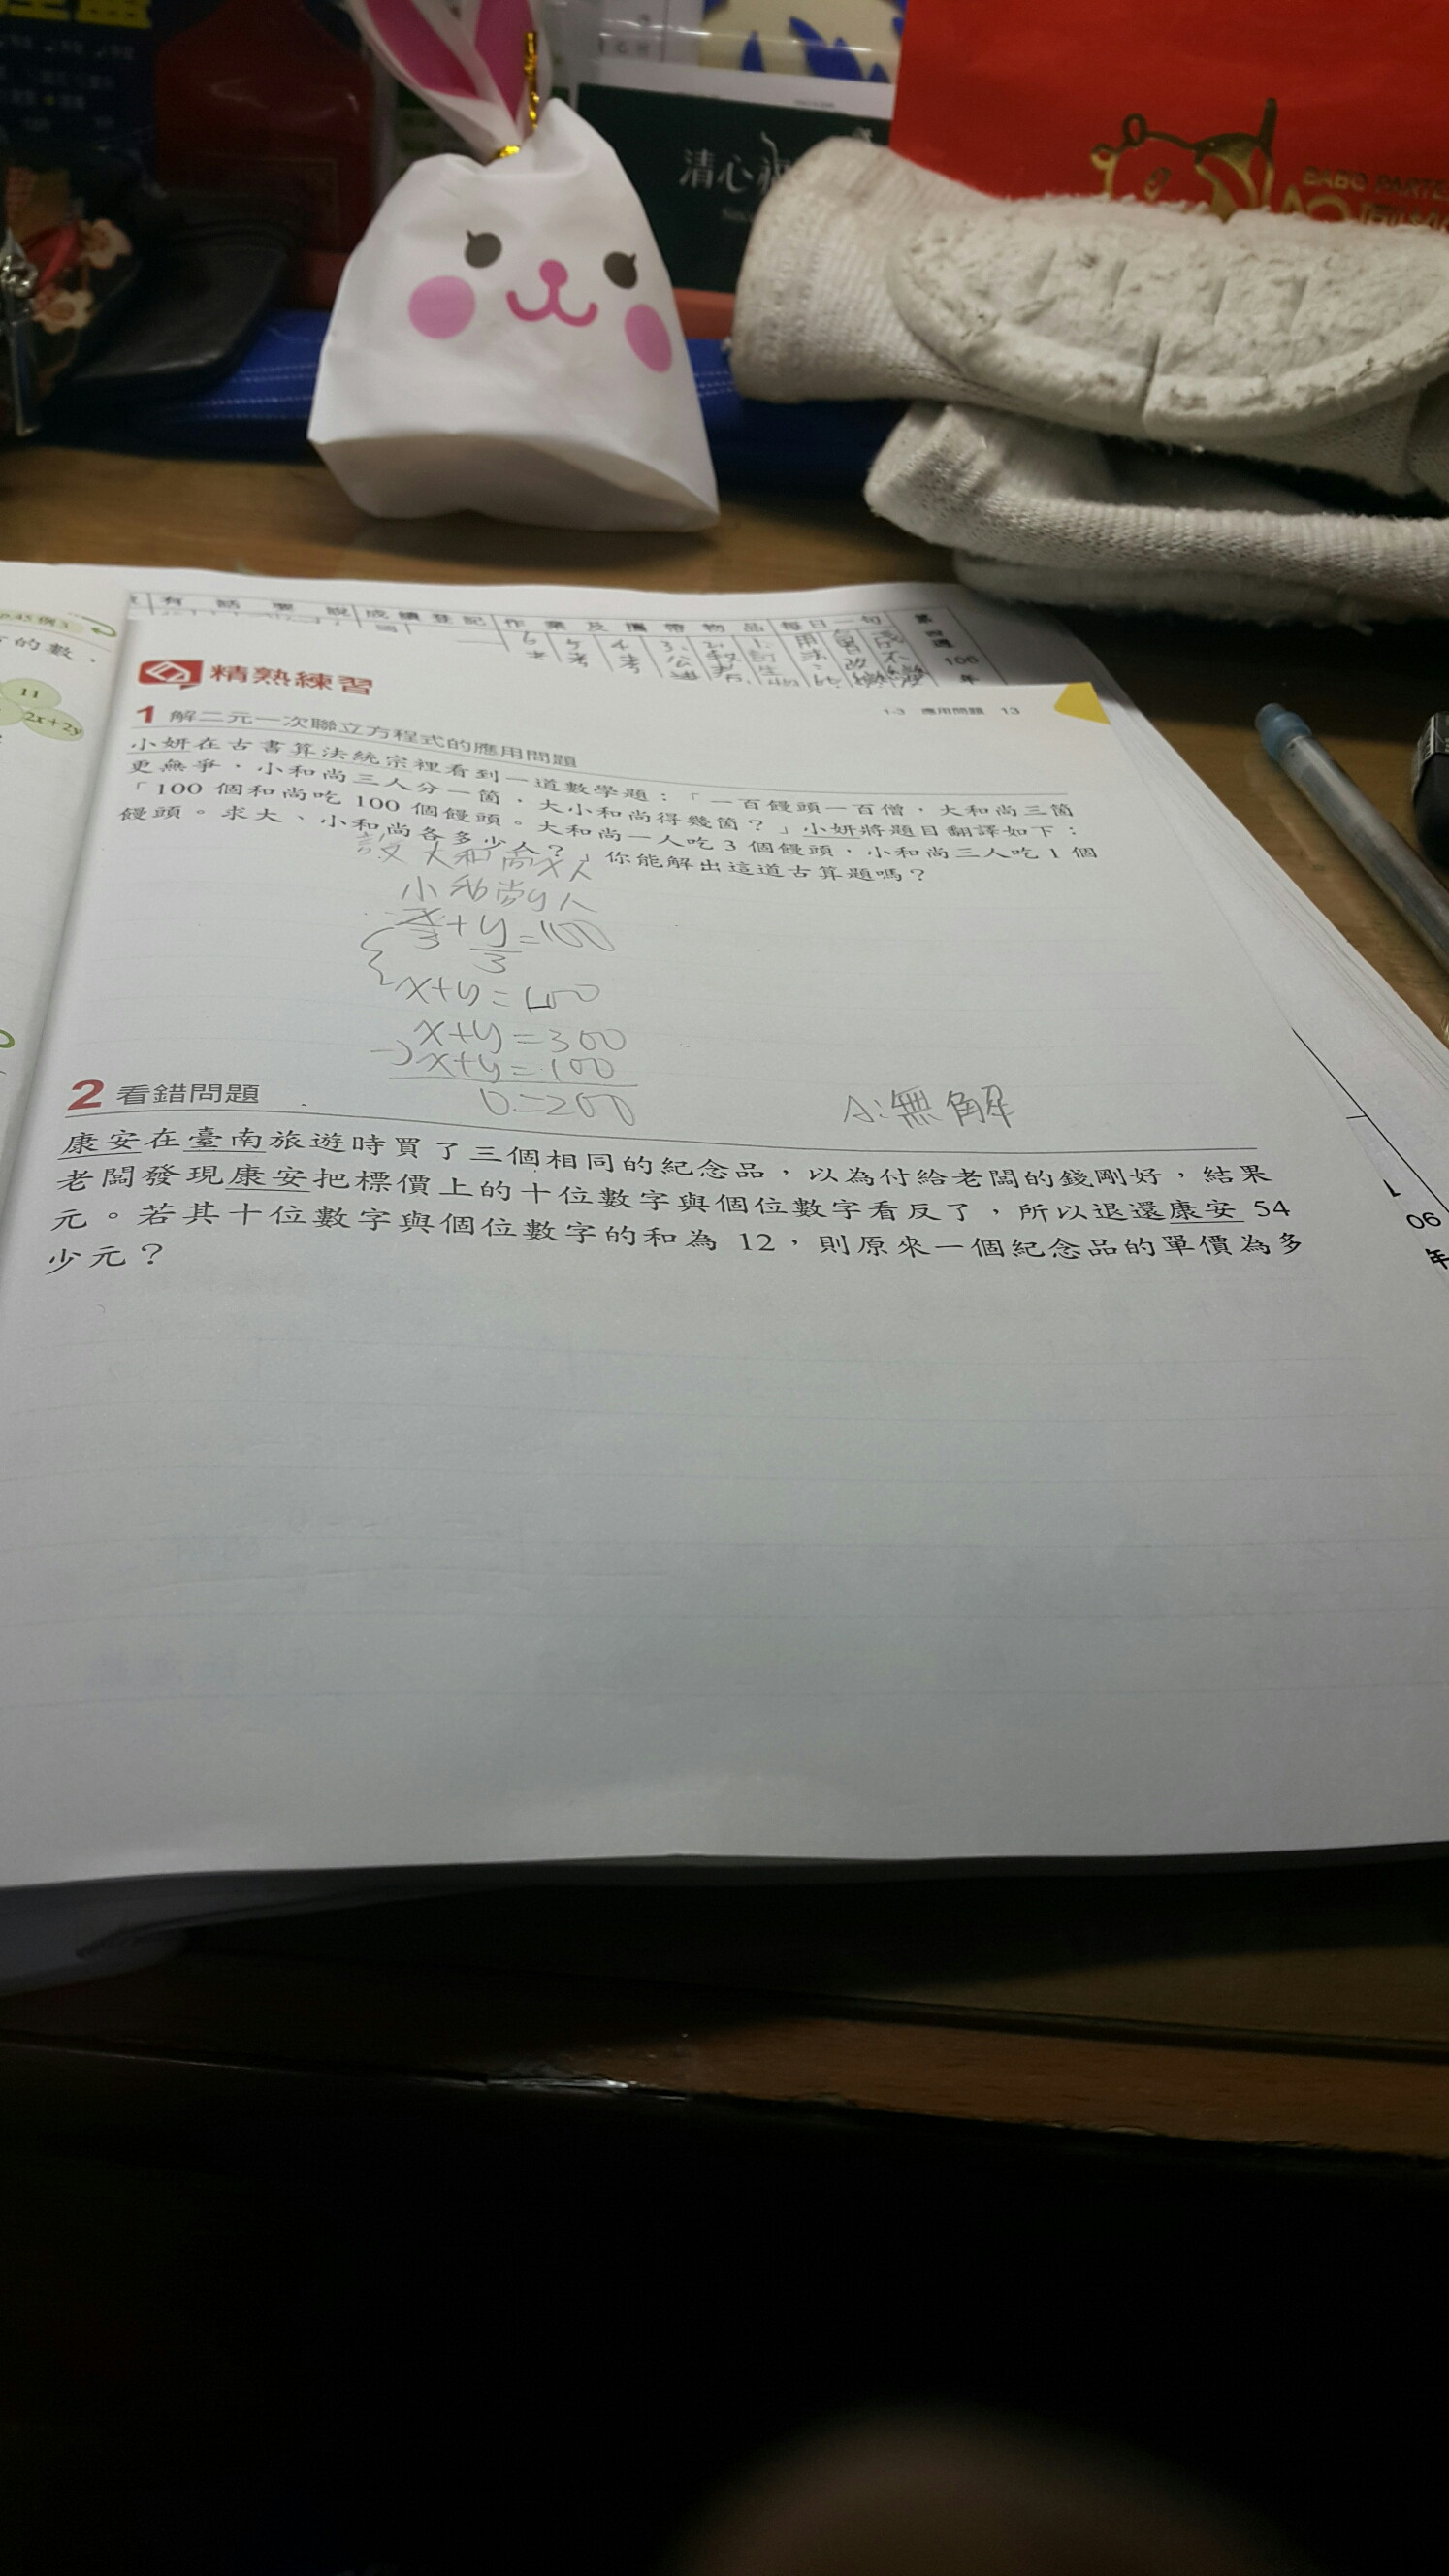 清心
BABO
有話要說
成績登記
作業及攜帶物品
每日一句
第四週
106年
6. 5. 4. 3. 2. 1.
11
2x+2y
的數，
精熟練習
1-3 應用問題 13
1 解二元一次聯立方程式的應用問題
小妍在古書算法統宗裡看到一道數學題：「一百饅頭一百僧，大和尚三箇
更無爭，小和尚三人分一箇，大小和尚得幾箇？」小妍將題目翻譯如下：
「100 個和尚吃 100 個饅頭。大和尚一人吃 3 個饅頭，小和尚三人吃 1 個
饅頭。求大、小和尚各多少人？」你能解出這道古算題嗎？
設大和尚x人
小和尚y人
x/3+y/3=100
x+y=100
x+y=300
-)x+y=100
0=200
A:無解
2 看錯問題
康安在臺南旅遊時買了三個相同的紀念品，以為付給老闆的錢剛好，結果
老闆發現康安把標價上的十位數字與個位數字看反了，所以退還康安 54
元。若其十位數字與個位數字的和為 12，則原來一個紀念品的單價為多
少元？
年